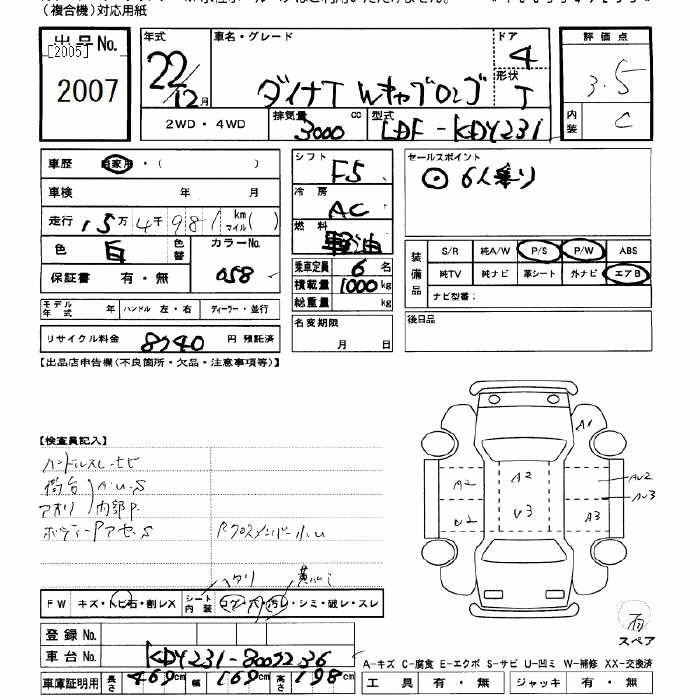 (複合機)対応用紙
出品No.
[2005]
2007
年式
22/12月
車名・グレード
ダイナT Wキャブロング
ドア
4
形状
T
2WD・4WD
排気量
3000 cc
型式
LDF-KDY231
評価点
3.5
内装
C
車歴
自家用・( )
車検 年 月
走行 15万4千981 km マイル( )
色 白 色替
カラーNo.
058
保証書 有・無
モデル年式 年
ハンドル 左・右
ディーラー・並行
リサイクル料金 8740 円 預託済
シフト
F5
冷房
AC
燃料
軽油
乗車定員 6 名
積載量 1000 kg
総重量 kg
名変期限
月 日
セールスポイント
6人乗り
装備品
S/R 純A/W P/S P/W ABS
純TV 純ナビ 革シート 外ナビ エアB
ナビ型番:
後日品
【出品店申告欄(不良箇所・欠品・注意事項等)】
【検査員記入】
ハンドルスレ・
荷台
アオリ
A.U.S
内部P.
ボディーPアセ.S
RクロスメンバーU
FW キズ・トビ石・割レX
シート内装 コゲ・穴・汚レ・シミ・破レ・スレ
A1
A2
A2
U2
U3
A3
AU2
AU3
スペア
登録No.
車台No. KDY231-8005236
車庫証明用 長さ 469cm 幅 169cm 高さ 198cm
A-キズ C-腐食 E-エクボ S-サビ U-凹ミ W-補修 XX-交換済
工具 有・無 ジャッキ 有・無